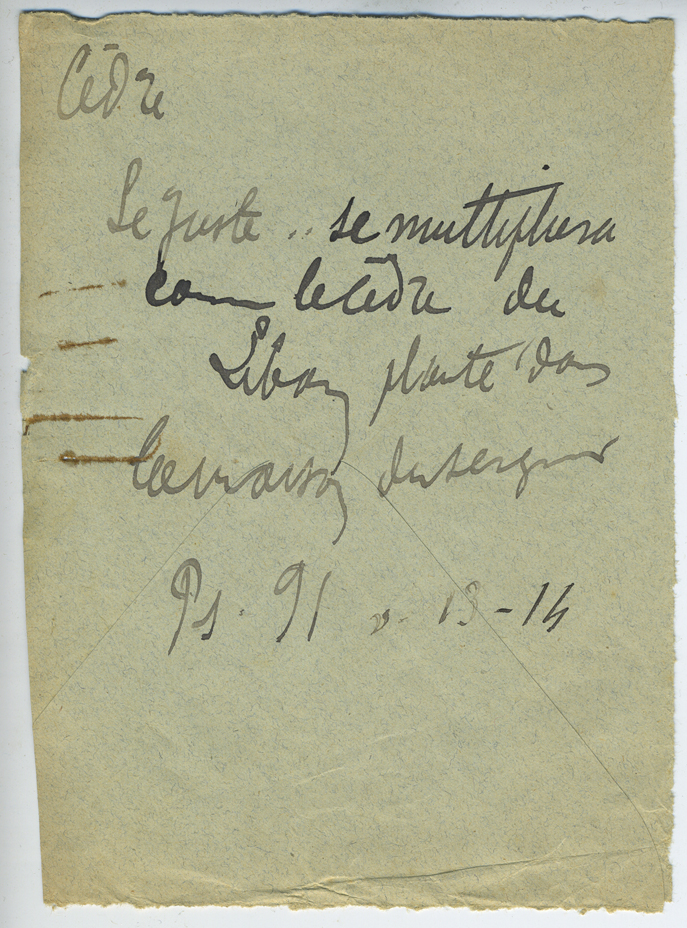 Cèdre
Le Juste .. se multipliera
comme le Cèdre du
Liban planté dans
la maison du Seigneur
Ps. 91 v. 13-14